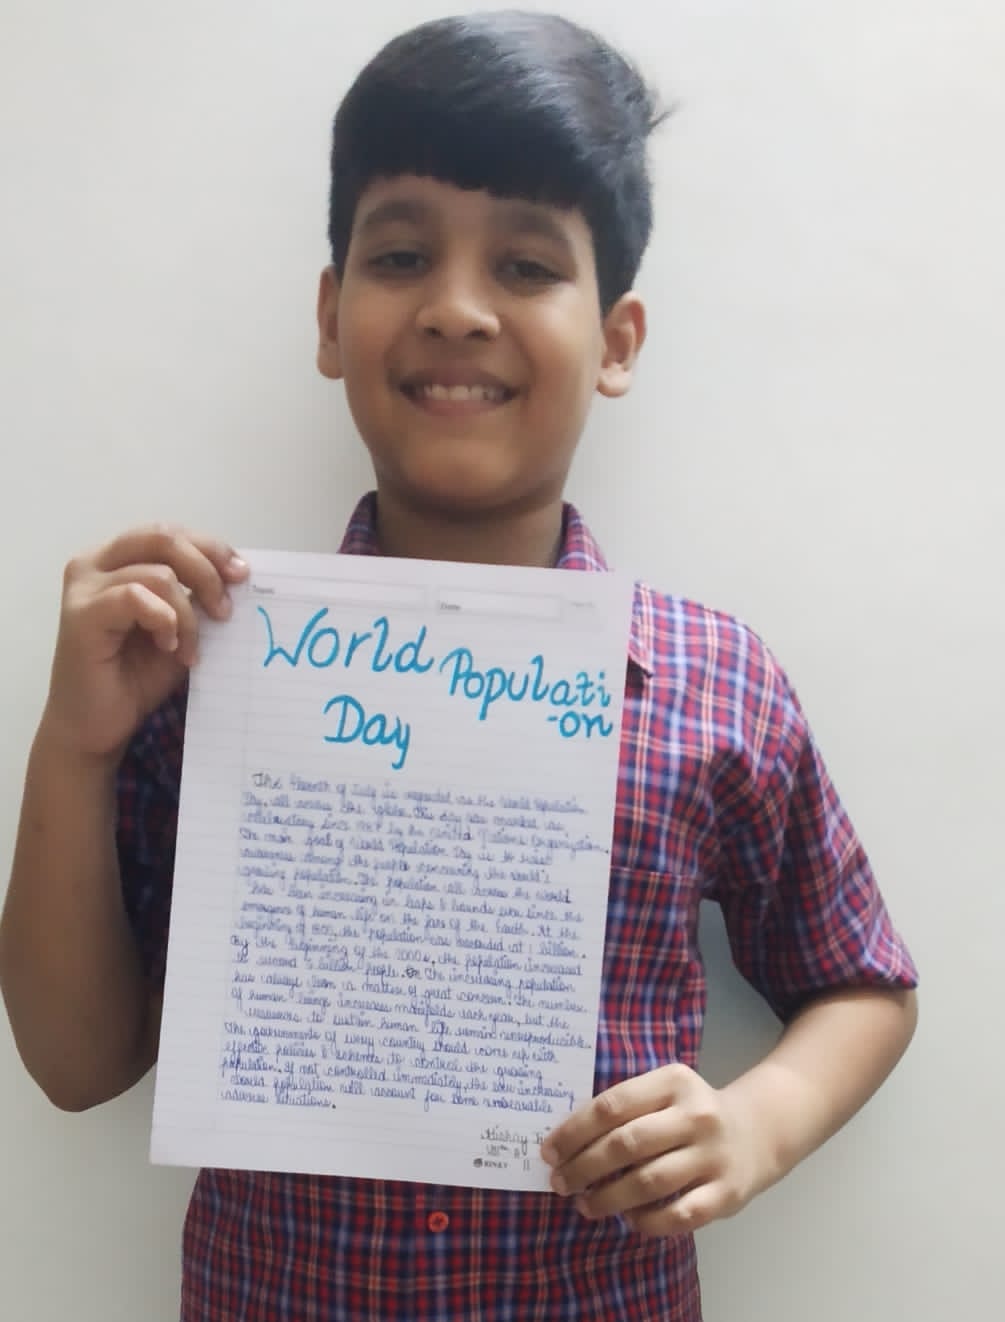 Topic
Date
World Populati
-on
Day
The eleventh of July is regarded as the World Population
Day, all across the globe. This day was marked as
celebratory since 1989 by the United Nations Organization.
The main goal of World Population Day is to raise
awareness among the people concerning the world's
growing population. The population all across the world
has been increasing in leaps & bounds ever since the
emergence of human life on the face of the Earth. At the
beginning of 1800, the population was recorded at 1 billion.
By the beginning of the 2000s, the population increased
to around 6 billion people. The increasing population
has always been a matter of great concern. The number
of human beings increases manifolds each year, but the
resources to sustain human life remain irreproducible.
The governments of every country should come up with
effective policies & schemes to control the growing
population. If not controlled immediately, the ever increasing
world population will account for some unbearable
adverse situations.
VIIIth A
11